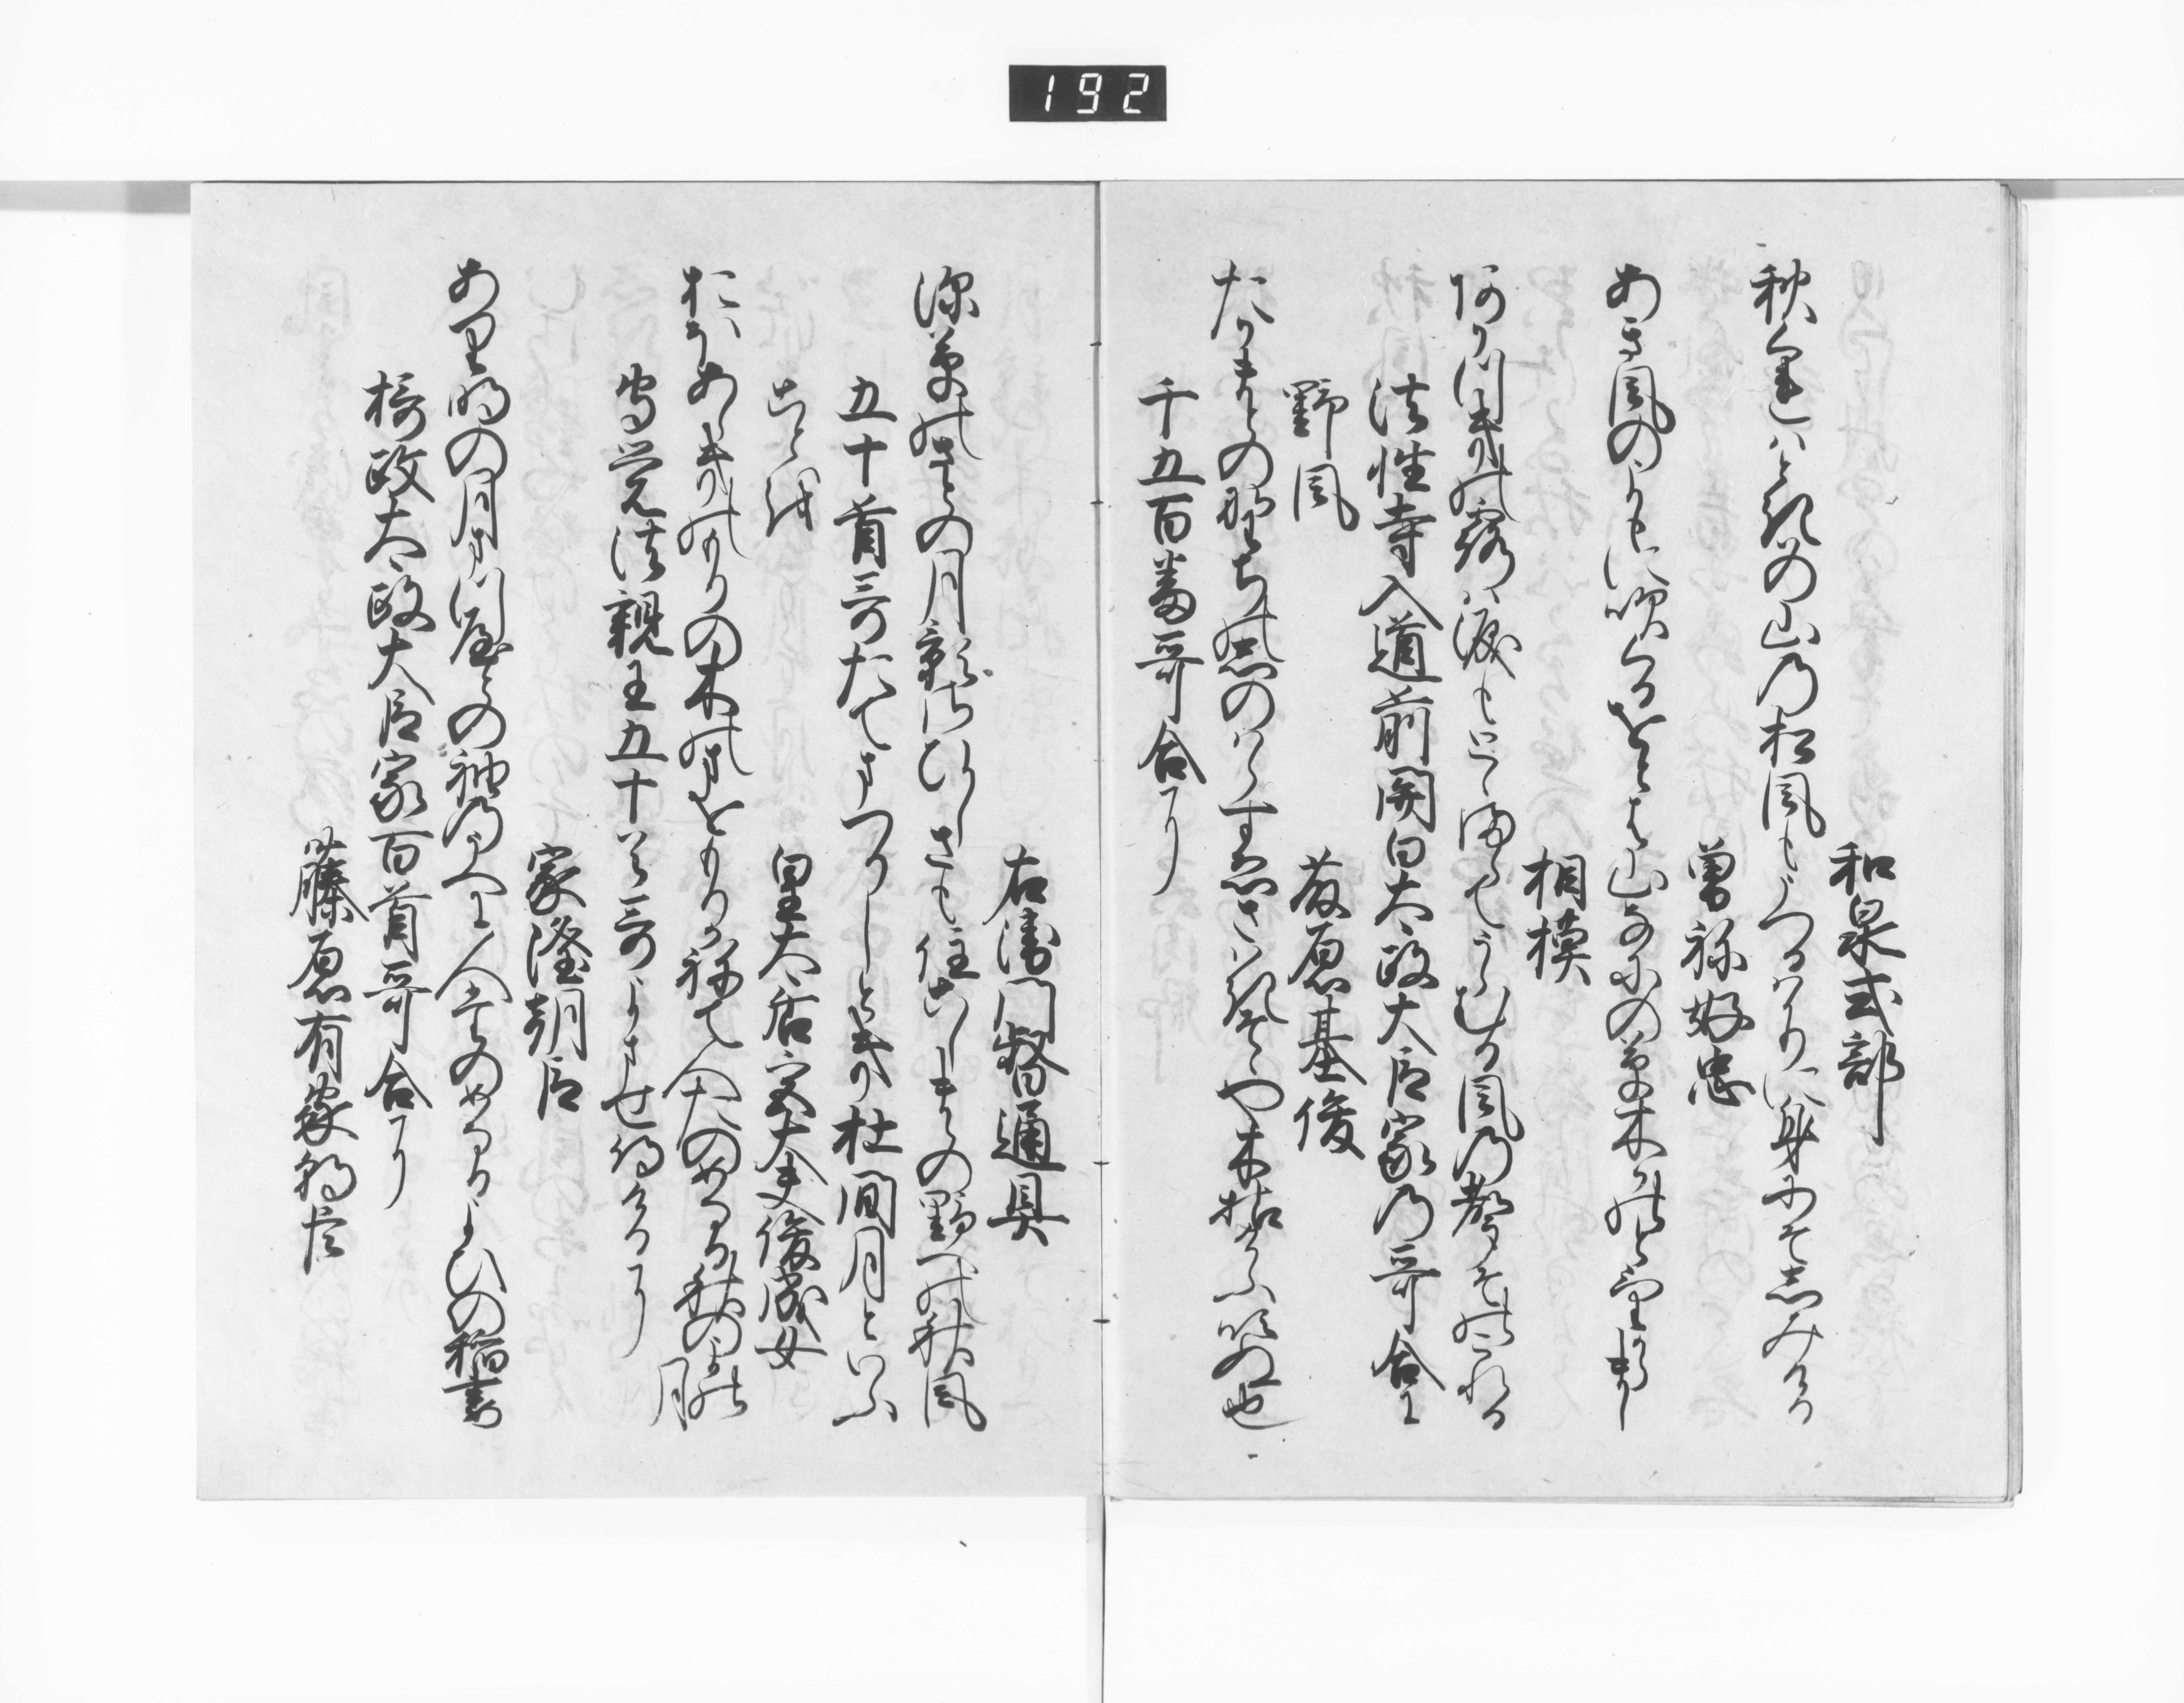 192
和泉式部
秋くれはときはの山の松風もうつるはかりに身にそしみける
曽祢好忠
あき風のよもに吹くるをとは山なにの草木かのとけかるへき
相模
あかつきの露は涙もとゝまらてうらむる風の声そのこれる
法性寺入道前関白太政大臣家乃哥合に
野風
藤原基俊
たかまとの野ちのしのはらすゑさはきそゝや木枯けふ吹ぬ也
千五百番哥合に
右衛門督通具
深草のさとの月影さひしさも住こしまゝの野への秋風
五十首哥たてまつりしとき杜間月といふ
ことを
皇太后宮大夫俊成女
おほあらきのもりの木のまをもりかねて人たのめなる秋のよの月
守覚法親王五十首哥よませ侍けるに
家隆朝臣
あり明の月まつやとの袖のうへに人たのめなるよひの稲妻
摂政太政大臣家百首哥合に
藤原有家朝臣